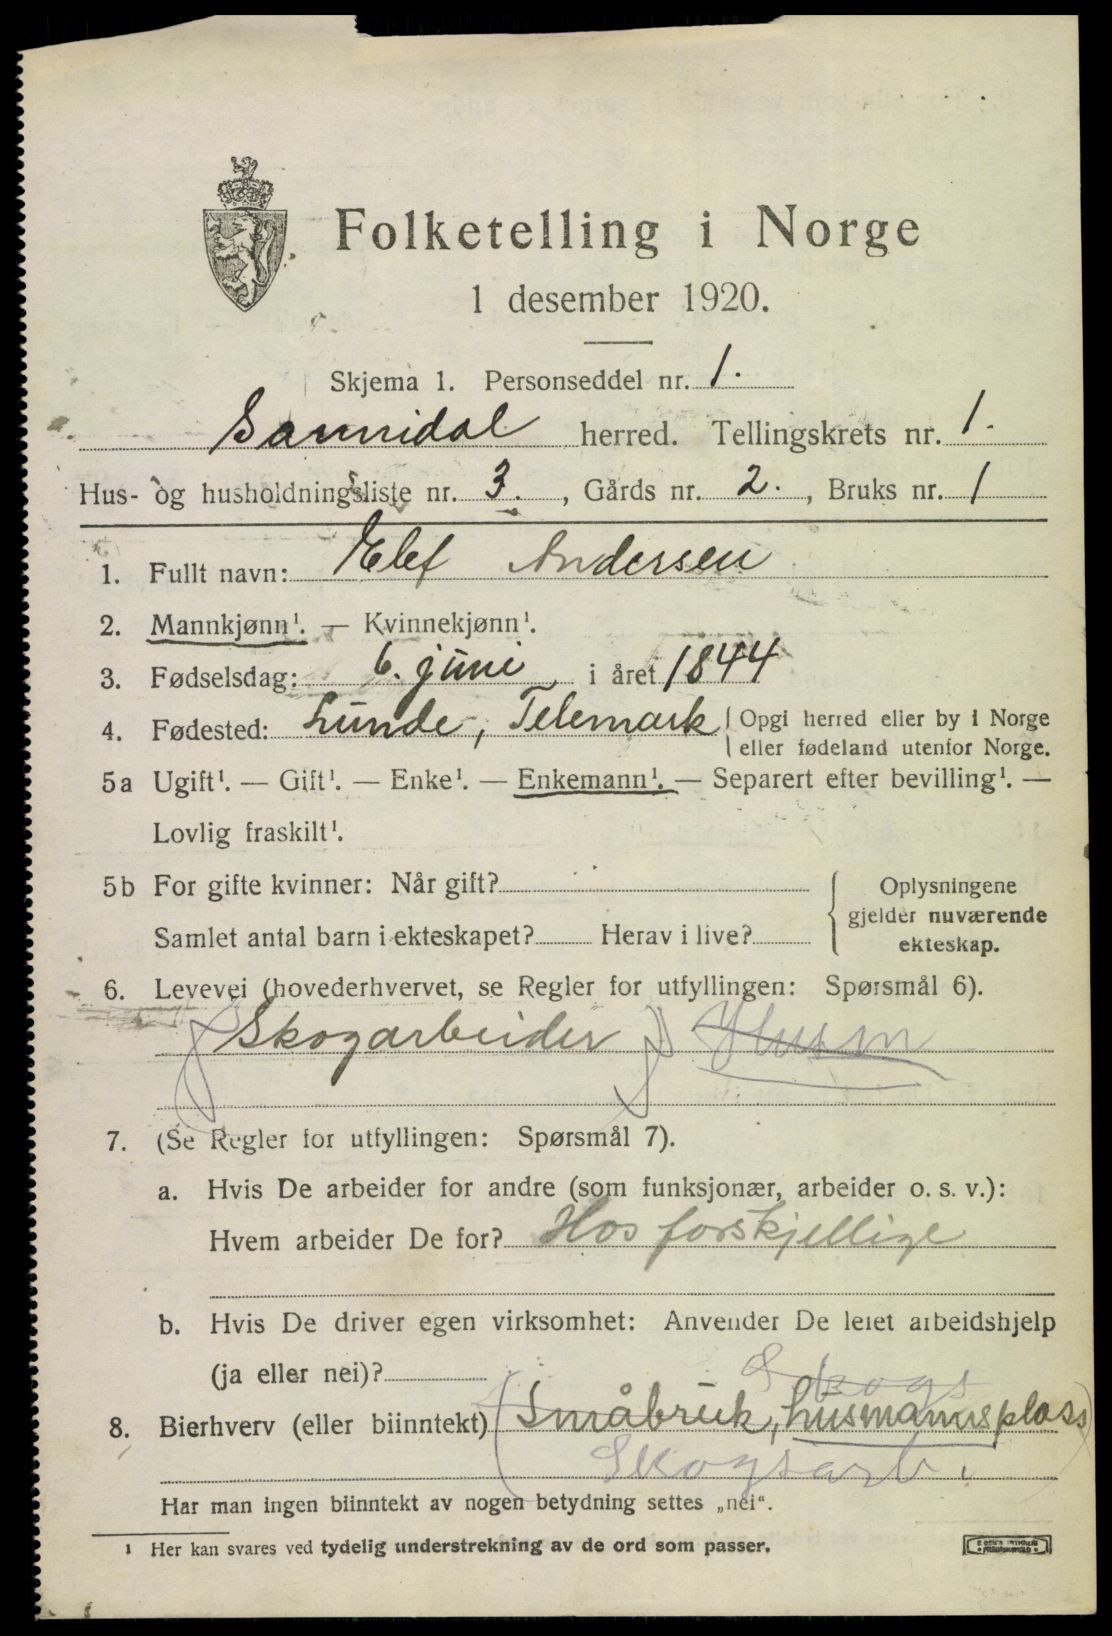 Folketelling i Norge
1 desember 1920.
Skjema 1. Personseddel nr. 1.
Sannidal herred. Tellingskrets nr. 1.
Hus- og husholdningsliste nr. 3. , Gårds nr. 2. , Bruks nr. 1
1. Fullt navn: Elef Andersen
2. Mannkjønn¹. — Kvinnekjønn¹.
3. Fødselsdag: 6. juni i året 1844
4. Fødested: Lunde, Telemark { Opgi herred eller by i Norge
eller fødeland utenfor Norge.
5a Ugift¹. — Gift¹. — Enke¹. — Enkemann¹. — Separert efter bevilling¹. —
Lovlig fraskilt¹.
5b For gifte kvinner: Når gift? { Oplysningene
gjelder nuværende
Samlet antal barn i ekteskapet? Herav i live? ekteskap.
6. Levevei (hovederhvervet, se Regler for utfyllingen: Spørsmål 6).
Skogarbeider Husm
7. (Se Regler for utfyllingen: Spørsmål 7).
a. Hvis De arbeider for andre (som funksjonær, arbeider o. s. v.):
Hvem arbeider De for? Hos forskjellige
b. Hvis De driver egen virksomhet: Anvender De leiet arbeidshjelp
(ja eller nei)?
Skogs
8. Bierhverv (eller biinntekt) (Småbruk, husmannsplass)
Skogsarb.
Har man ingen biinntekt av nogen betydning settes „nei“.
¹ Her kan svares ved tydelig understrekning av de ord som passer.